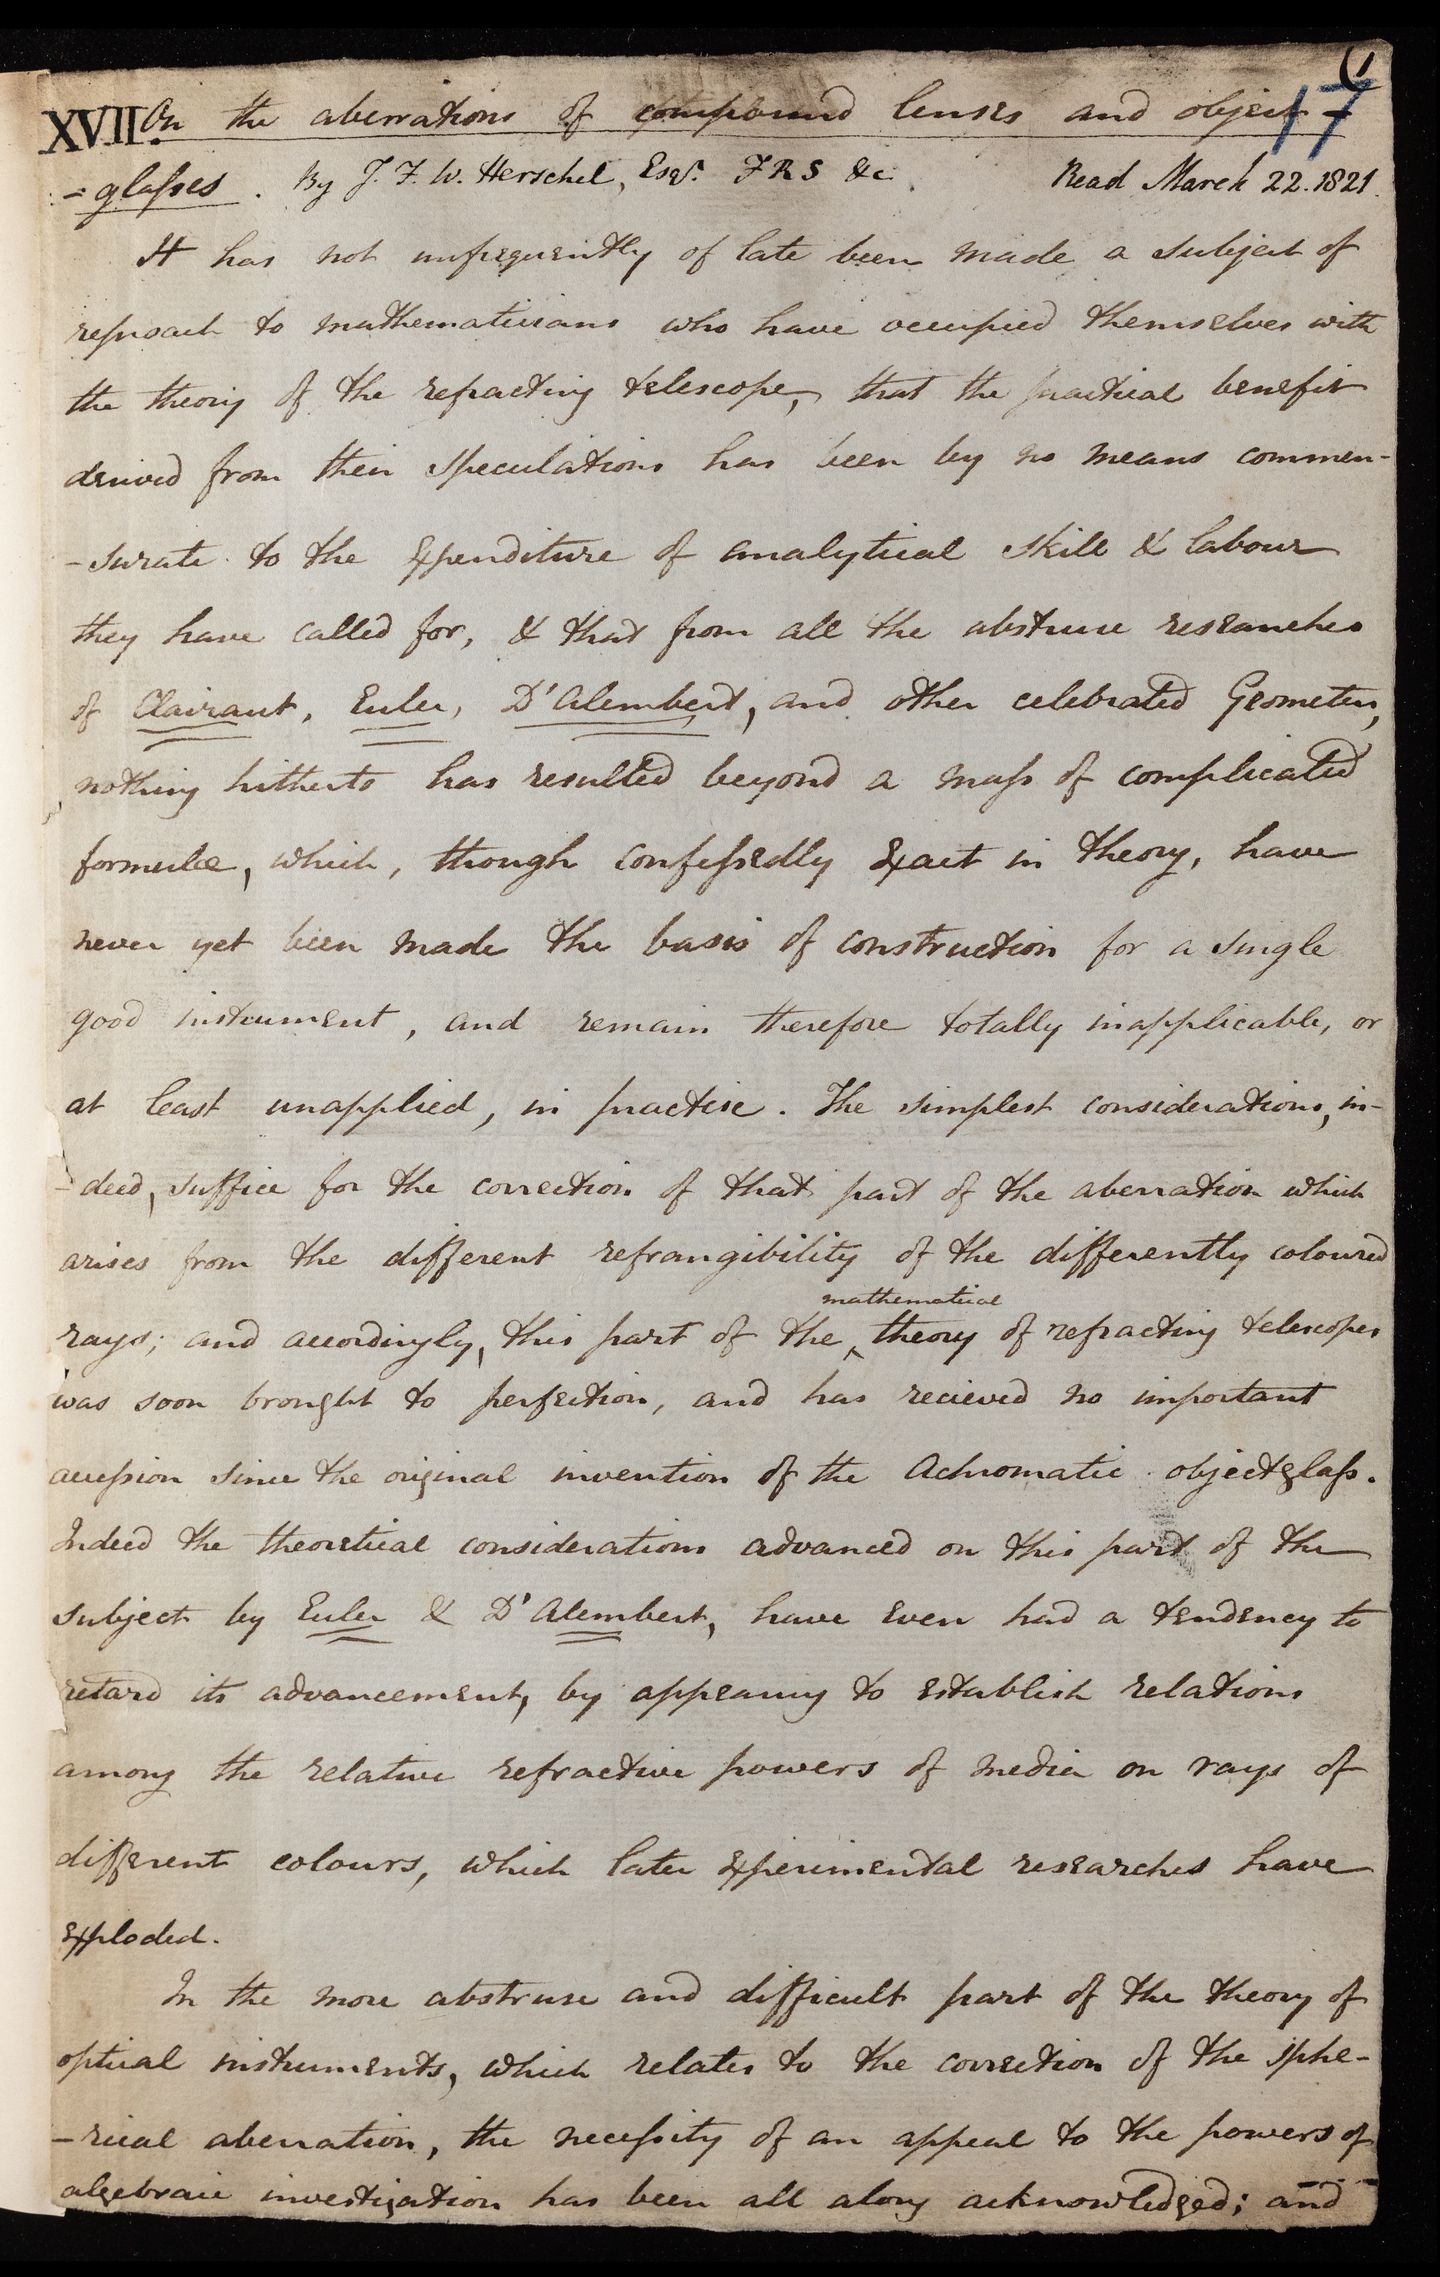 (1
17
XVII. On the aberrations of compound lenses and object-
-glasses. By J. F. W. Herschel, Esqr. F R S &c. Read March 22. 1821.
It has not unfrequently of late been made a subject of
reproach to mathematicians who have occupied themselves with
the theory of the refracting telescope, that the practical benefit
derived from their speculations has been by no means commen-
-surate to the expenditure of analytical skill & labour
they have called for, & that from all the abstruse researches
of Clairaut, Euler, D'Alembert, and other celebrated Geometers,
nothing hitherto has resulted beyond a mass of complicated
formulæ, which, though confessedly exact in theory, have
never yet been made the basis of construction for a single
good instrument, and remain therefore totally inapplicable, or
at least unapplied, in practise. The simplest considerations, in-
-deed, suffice for the correction of that part of the aberration which
arises from the different refrangibility of the differently coloured
mathematical
rays; and accordingly, this part of the theory of refracting telescopes
was soon brought to perfection, and has recieved no important
accession since the original invention of the Achromatic objectglass.
Indeed the theoretical considerations advanced on this part of the
subject by Euler & D'Alembert, have even had a tendency to
retard its advancement, by appearing to establish relations
among the relative refractive powers of media on rays of
different colours, which later experimental researches have
exploded.
In the more abstruse and difficult part of the theory of
optical instruments, which relates to the correction of the sphe-
-rical aberration, the necessity of an appeal to the powers of
algebraic investigation has been all along acknowledged; and